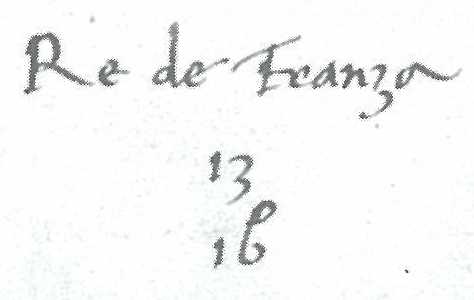 Re de Franza
13
16